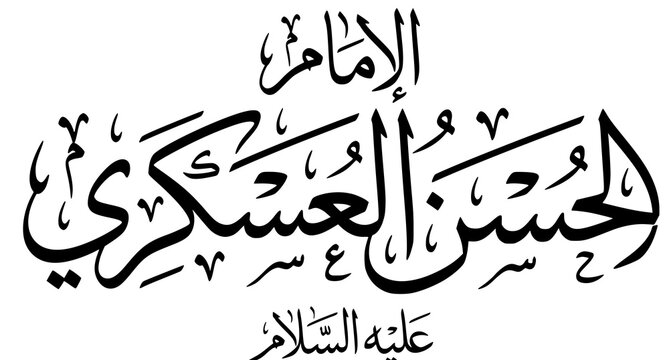 الإمام
الحسن العسكري
عليه السلام